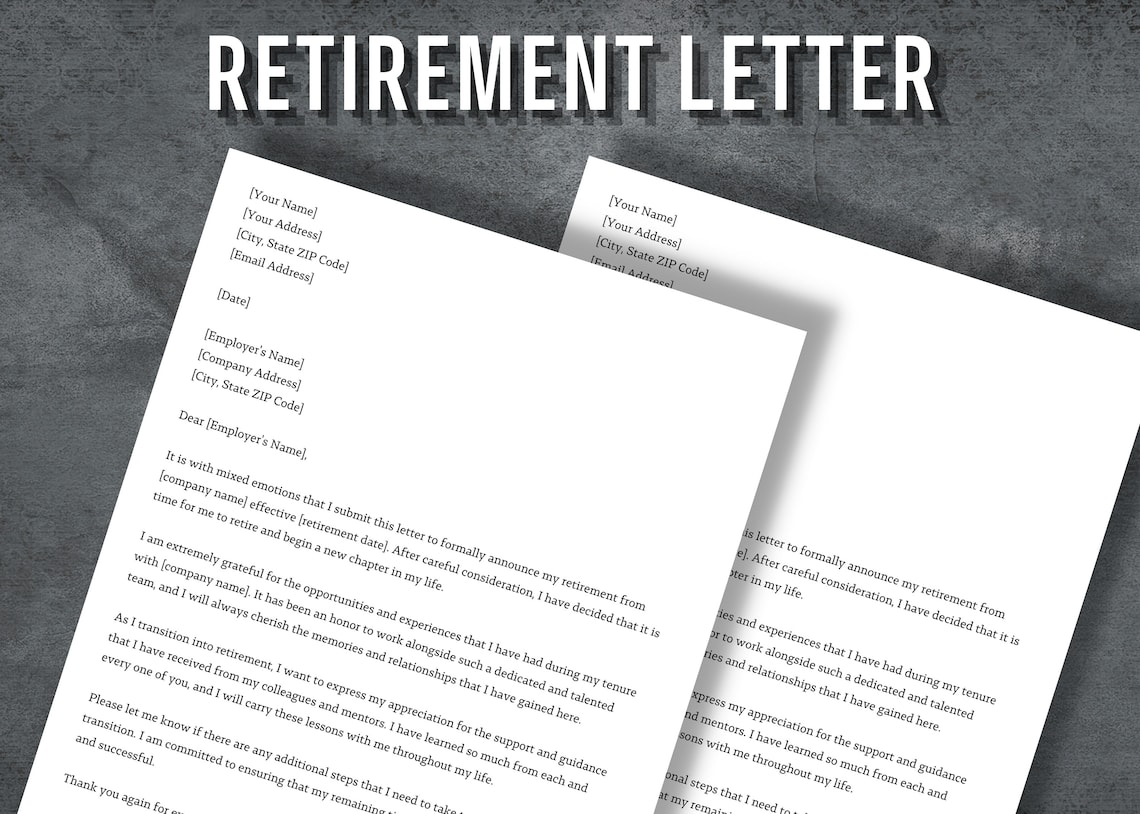 RETIREMENT LETTER
[Your Name]
[Your Address]
[City, State ZIP Code]
[Email Address]
[Date]
[Employer's Name]
[Company Address]
[City, State ZIP Code]
Dear [Employer's Name],
It is with mixed emotions that I submit this letter to formally announce my retirement from
[company name] effective [retirement date]. After careful consideration, I have decided that it is
time for me to retire and begin a new chapter in my life.
I am extremely grateful for the opportunities and experiences that I have had during my tenure
with [company name]. It has been an honor to work alongside such a dedicated and talented
team, and I will always cherish the memories and relationships that I have gained here.
As I transition into retirement, I want to express my appreciation for the support and guidance
that I have received from my colleagues and mentors. I have learned so much from each and
every one of you, and I will carry these lessons with me throughout my life.
Please let me know if there are any additional steps that I need to take
transition. I am committed to ensuring that my remaining
and successful.
Thank you again for
[Your Name]
[Your Address]
[City, State ZIP Code]
[Email Address]
is letter to formally announce my retirement from
e]. After careful consideration, I have decided that it is
pter in my life.
ties and experiences that I have had during my tenure
or to work alongside such a dedicated and talented
ries and relationships that I have gained here.
xpress my appreciation for the support and guidance
nd mentors. I have learned so much from each and
sons with me throughout my life.
onal steps that I need to
at my remaining